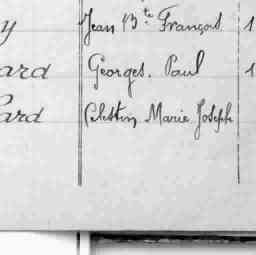 y Jean B^te. François 1
ard Georges. Paul 1
ard Célestin Marie Joseph